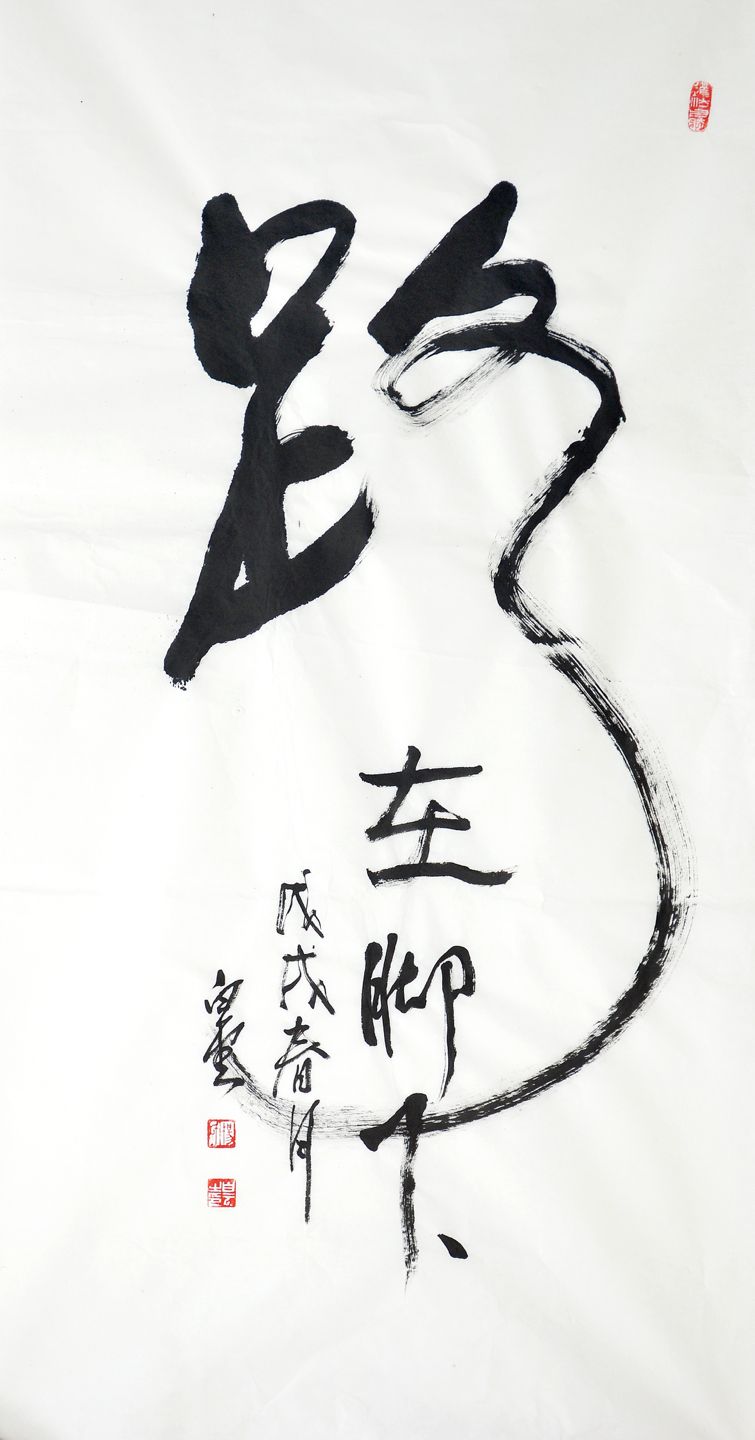 路
在脚下
戊戌春月
白云